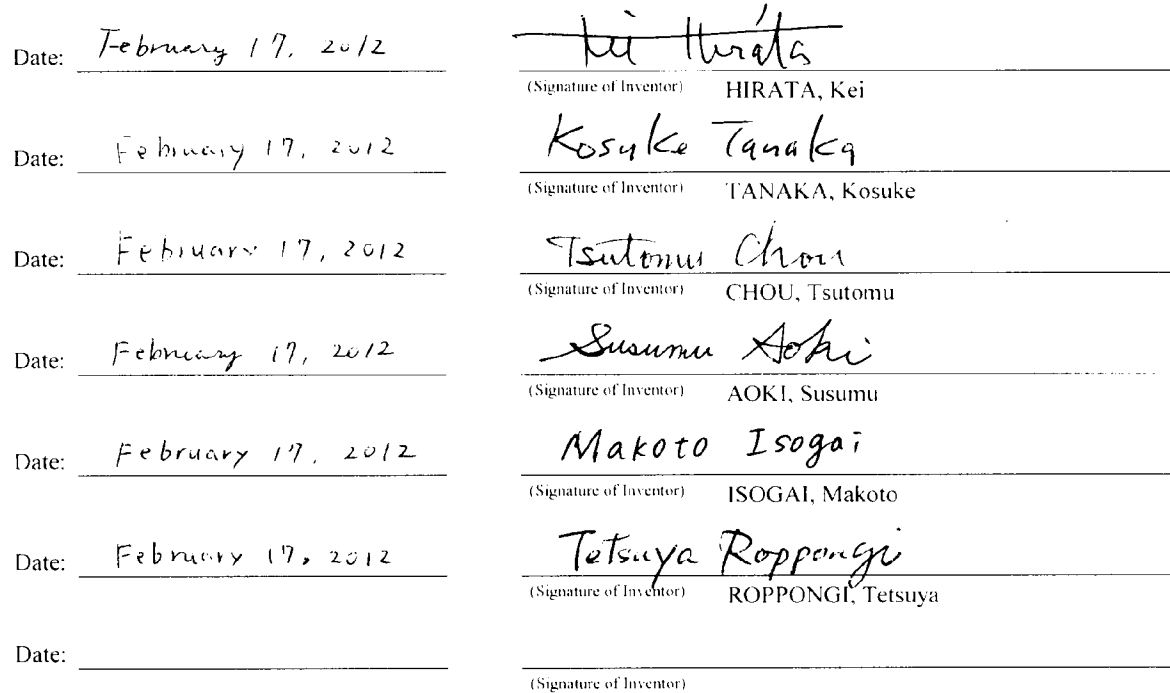 Date: February 17, 2012 Kei Hirata
(Signature of Inventor) HIRATA, Kei
Date: February 17, 2012 Kosuke Tanaka
(Signature of Inventor) TANAKA, Kosuke
Date: February 17, 2012 Tsutomu Chou
(Signature of Inventor) CHOU, Tsutomu
Date: February 17, 2012 Susumu Aoki
(Signature of Inventor) AOKI, Susumu
Date: February 17, 2012 Makoto Isogai
(Signature of Inventor) ISOGAI, Makoto
Date: February 17, 2012 Tetsuya Roppongi
(Signature of Inventor) ROPPONGI, Tetsuya
Date:
(Signature of Inventor)